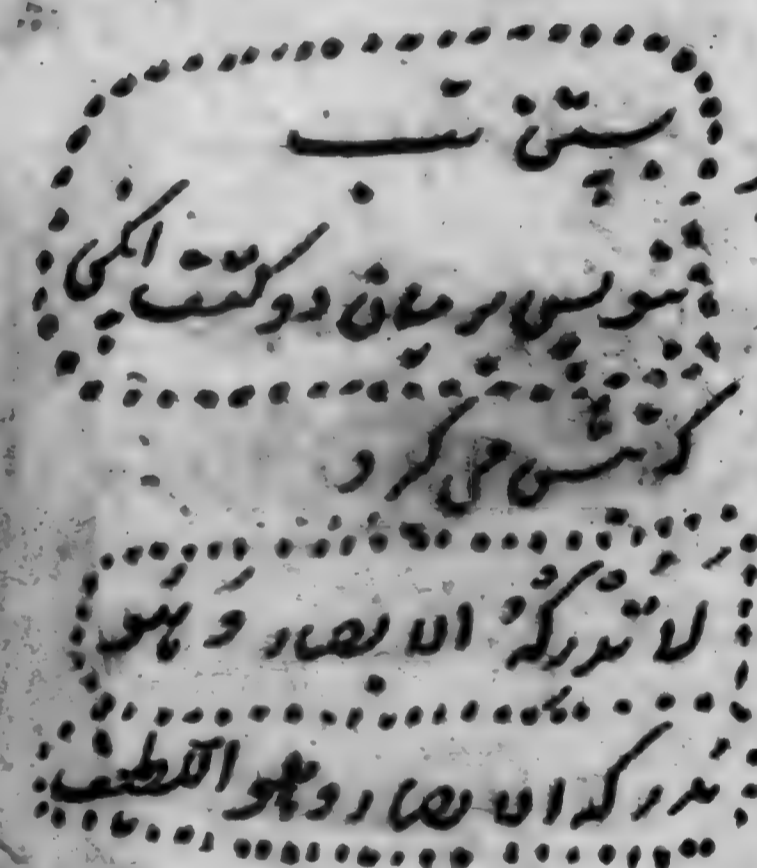 بستن تب
بنویس بر میان دو کتف
می کیرد
لَا تُدْرِكُهُ الابصار وَ هُوَ
يدرك الابصار وهو اللطيف